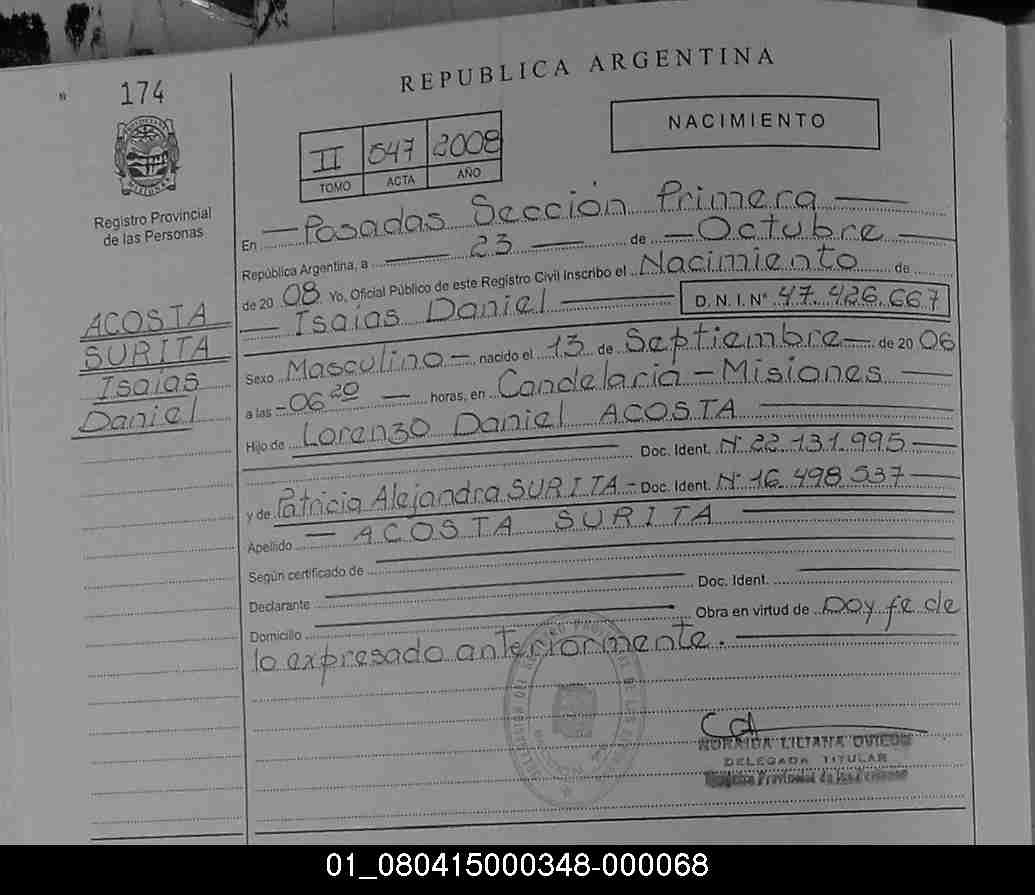 REPUBLICA ARGENTINA
Nº 174
NACIMIENTO
II 547 2008
TOMO ACTA AÑO
Registro Provincial
de las Personas
En — Posadas Sección Primera —
República Argentina, a — 23 — de — Octubre —
de 20 08 Yo, Oficial Público de este Registro Civil Inscribo el Nacimiento de
— Isaias Daniel — D.N.I.Nº 47.426.667
ACOSTA
SURITA
Isaías
Daniel
Sexo Masculino — nacido el 13 de Septiembre — de 20 06
a las - 06 20 — horas, en Candelaria - Misiones —
Hijo de Lorenzo Daniel ACOSTA —
Doc. Ident. Nº 22.131.995 —
y de Patricia Alejandra SURITA - Doc. Ident. Nº 16.498.537 —
Apellido — ACOSTA SURITA —
Según certificado de
Declarante Doc. Ident.
Domicilio Obra en virtud de Doy fe de
lo expresado anteriormente. —
LILIANA OVIEDO
DELEGADA TITULAR
Registro Provincial de las Personas
01_080415000348-000068